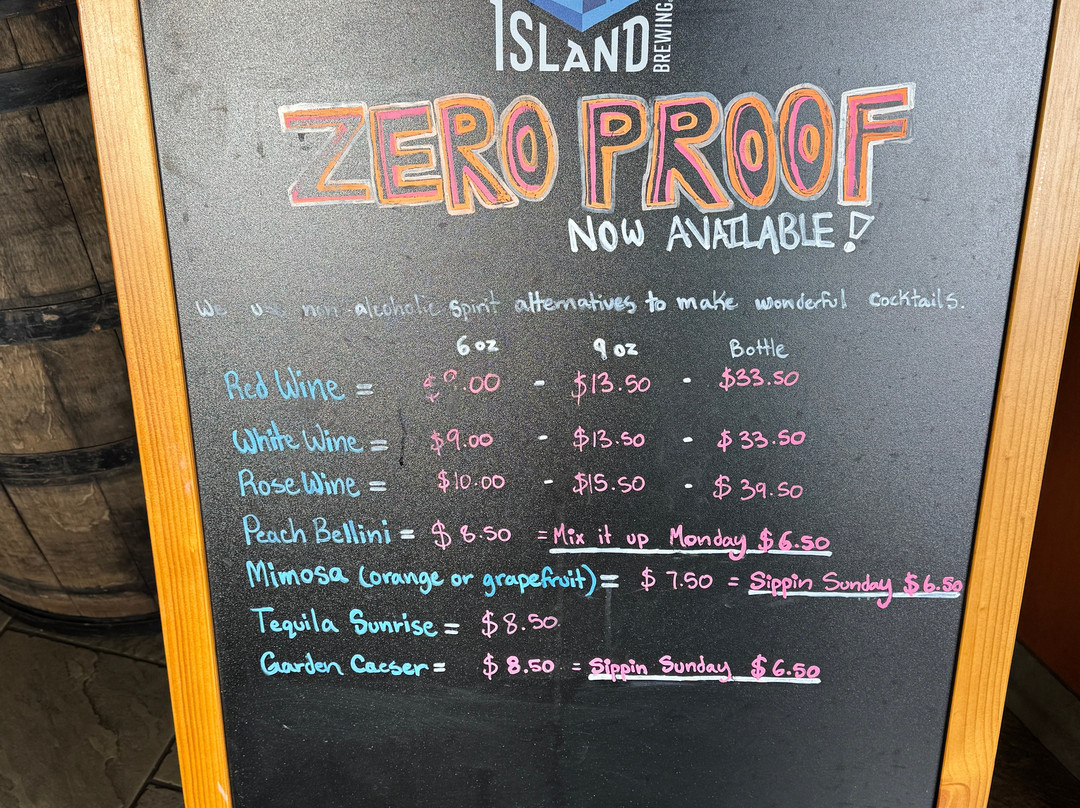 ISLAND
BREWING
ZERO PROOF
NOW AVAILABLE!
We use non alcoholic spirit alternatives to make wonderful cocktails.
6 oz 9 oz Bottle
Red Wine = $9.00 - $13.50 - $33.50
White Wine = $9.00 - $13.50 - $33.50
Rose Wine = $10.00 - $15.50 - $39.50
Peach Bellini = $8.50 = Mix it up Monday $6.50
Mimosa (orange or grapefruit) = $7.50 = Sippin Sunday $6.50
Tequila Sunrise = $8.50
Garden Caeser = $8.50 = Sippin Sunday $6.50